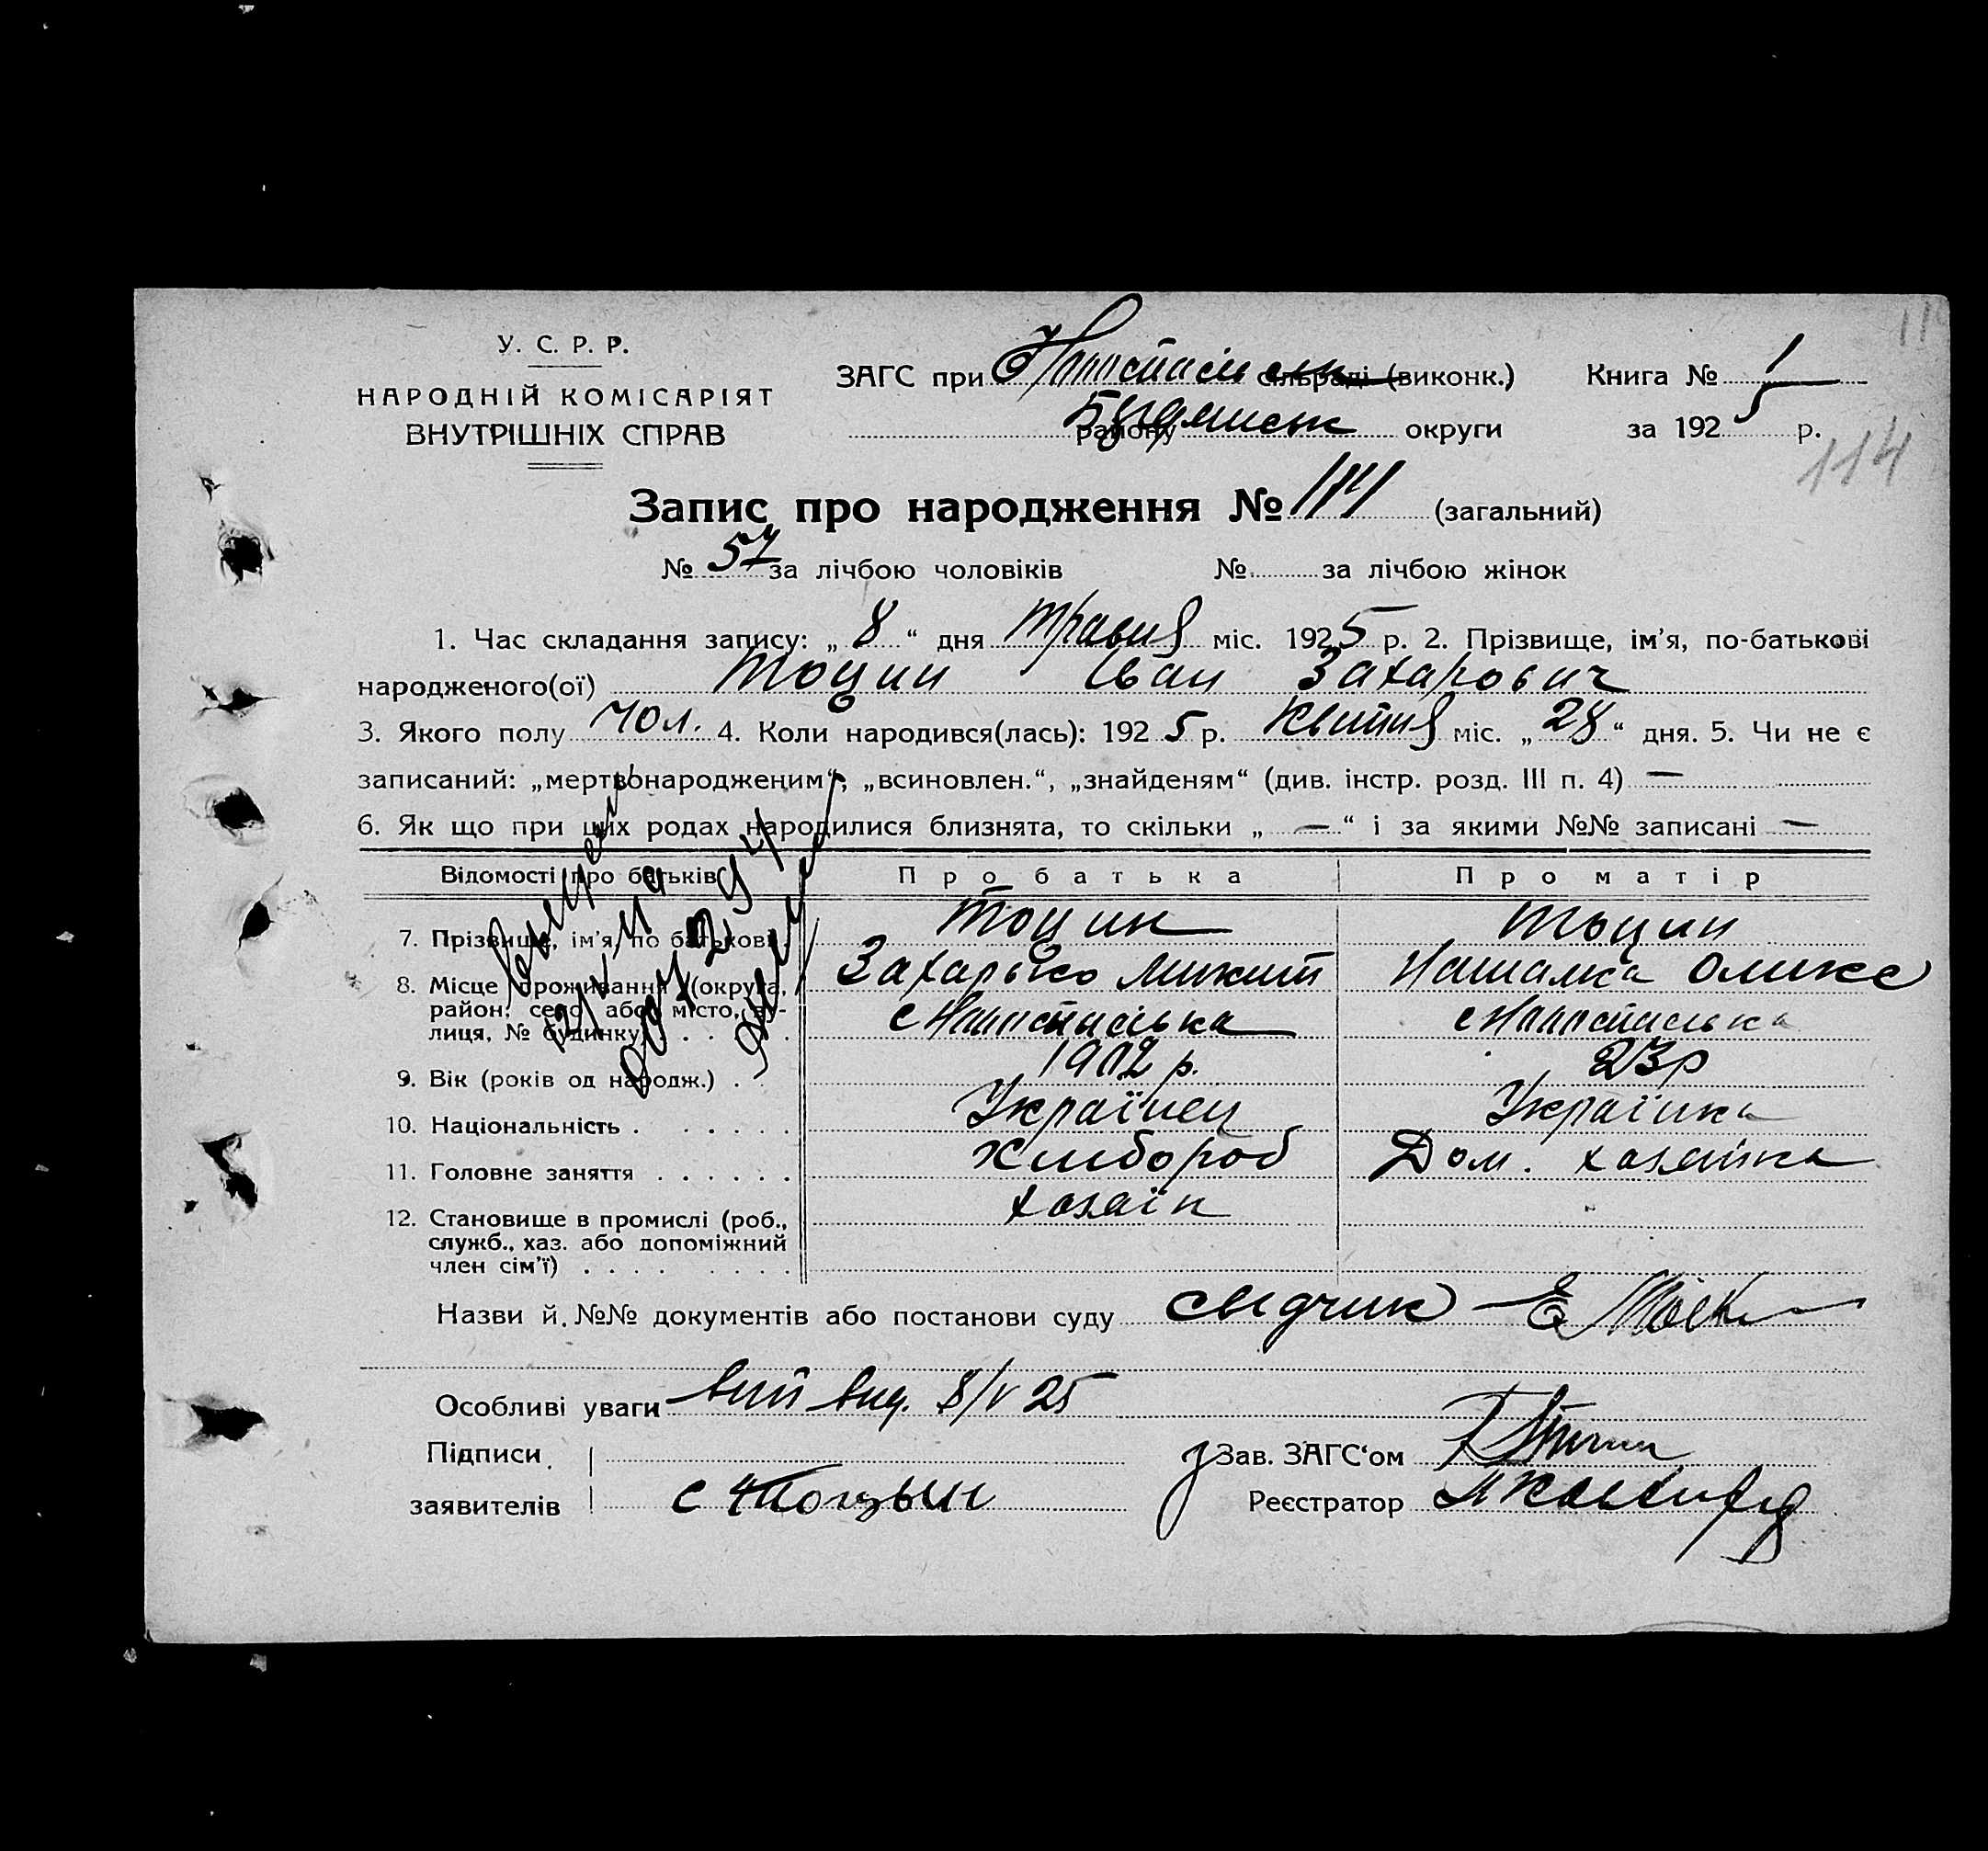 У. С. Р. Р.
НАРОДНІЙ КОМІСАРІЯТ
ВНУТРІШНІХ СПРАВ
ЗАГС при сільраді (виконк.)
району округи
Книга № 1
за 1925 р.
114
Запис про народження № 114 (загальний)
№ 57 за лічбою чоловіків № за лічбою жінок
1. Час складання запису: „ 8 “ дня Травня міс. 1925 р. 2. Прізвище, ім’я, по-батькові
народженого(ої) Тоцин Іван Захарович
3. Якого полу чол. 4. Коли народився(лась): 1925 р. Квітня міс. „ 28 “ дня. 5. Чи не є
записаний: „мертвонародженим“, „всиновлен.“, „знайденям“ (див. інстр. розд. III п. 4) —
6. Як що при цих родах народилися близнята, то скільки „ — “ і за якими №№ записані —
Відомості про батьків Про батька Про матір
7. Прізвище, ім’я, по батькові Тоцин Тоцин
Захарько Микит Наталка Олике
8. Місце проживання (округа, район, село або місто, ву-
лиця, № будинку) с с
9. Вік (років од народж.) 1902 р. 23 р
10. Національність Українец Українка
11. Головне заняття Хлибороб Дом. хазяйка
12. Становище в промислі (роб., хазаін
служб., хаз. або допоміжний
член сім’ї)
Назви й №№ документів або постанови суду свідчик
Особливі уваги вит вид. 8/V 25
Підписи Зав. ЗАГС‘ом
заявителів Тоцын Реєстратор